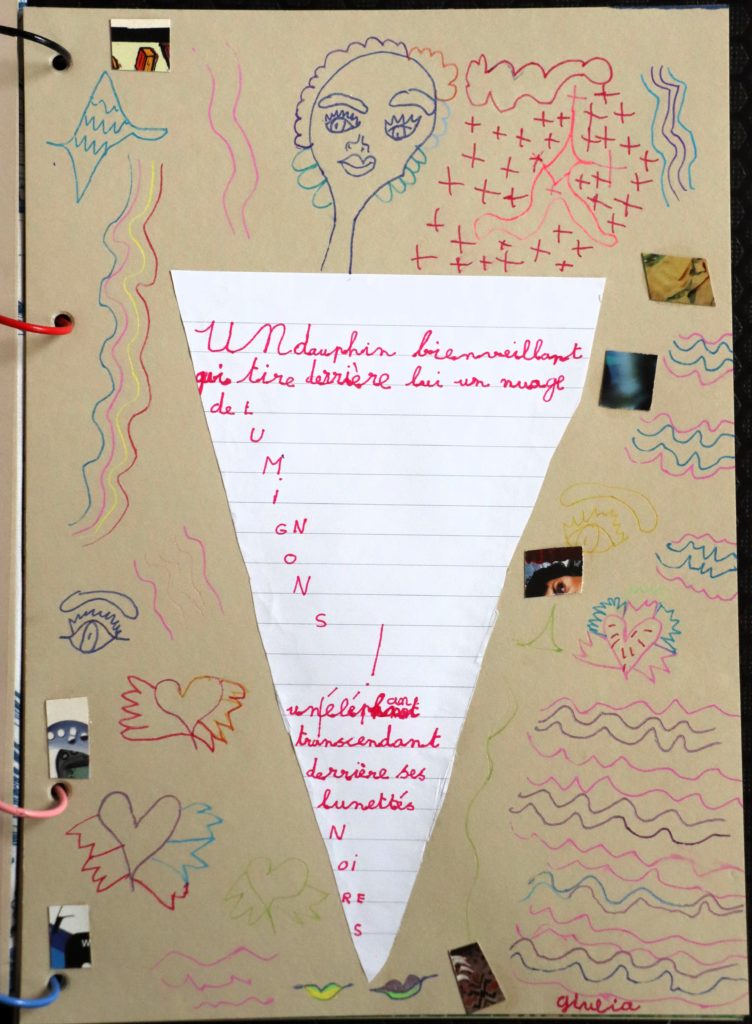 UN dauphin bienveillant
qui tire derrière lui un nuage
de L
U
M
I
GN
O
N
S
!
un éléphant
transcendant
derrière ses
lunettés
N
OI
RE
S
giulia